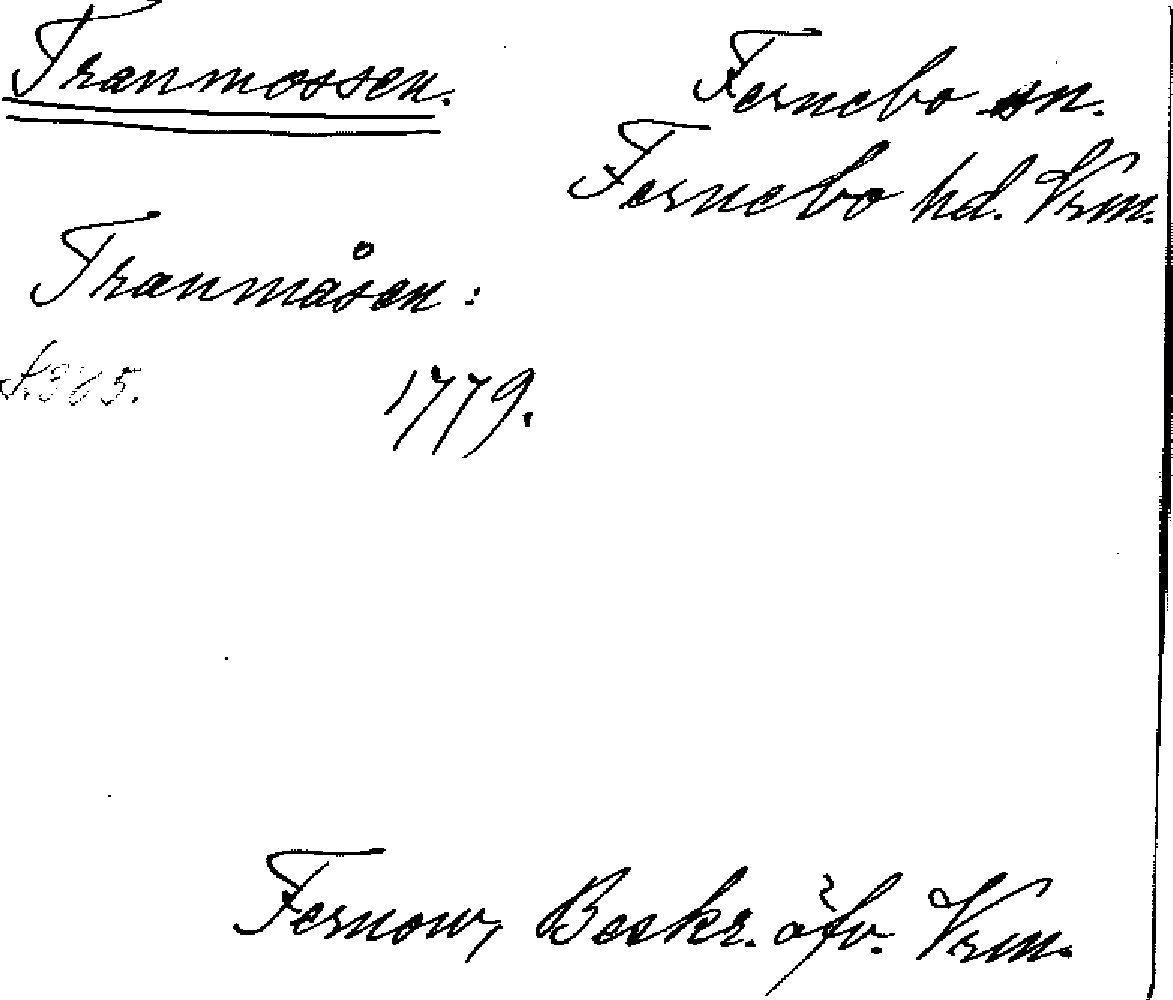 Tranmossen.
Fernebo sn.
Fernebo hd. Vrm.
Tranmåsen:
S.365.
1779.
Fernow, Beskr. öfv. Vrm.